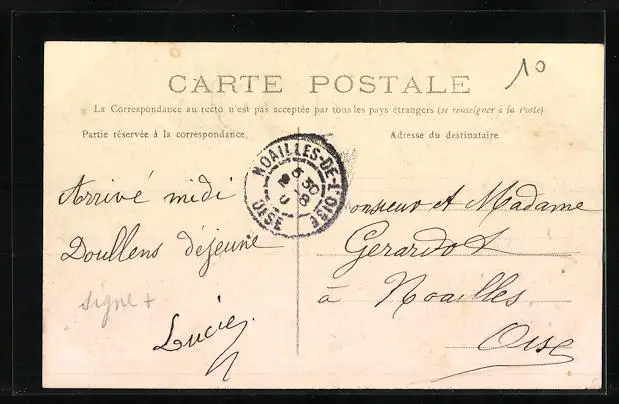 10
CARTE POSTALE
La Correspondance au recto n'est pas acceptée par tous les pays étrangers (se renseigner à la Poste)
Partie réservée à la correspondance.
Adresse du destinataire
NOAILLES-DE-L'OISE
OISE
Arrivé midi
Doullens déjeuné
signe +
Lucie
Monsieur et Madame
Gerardot
à Noailles
Oise